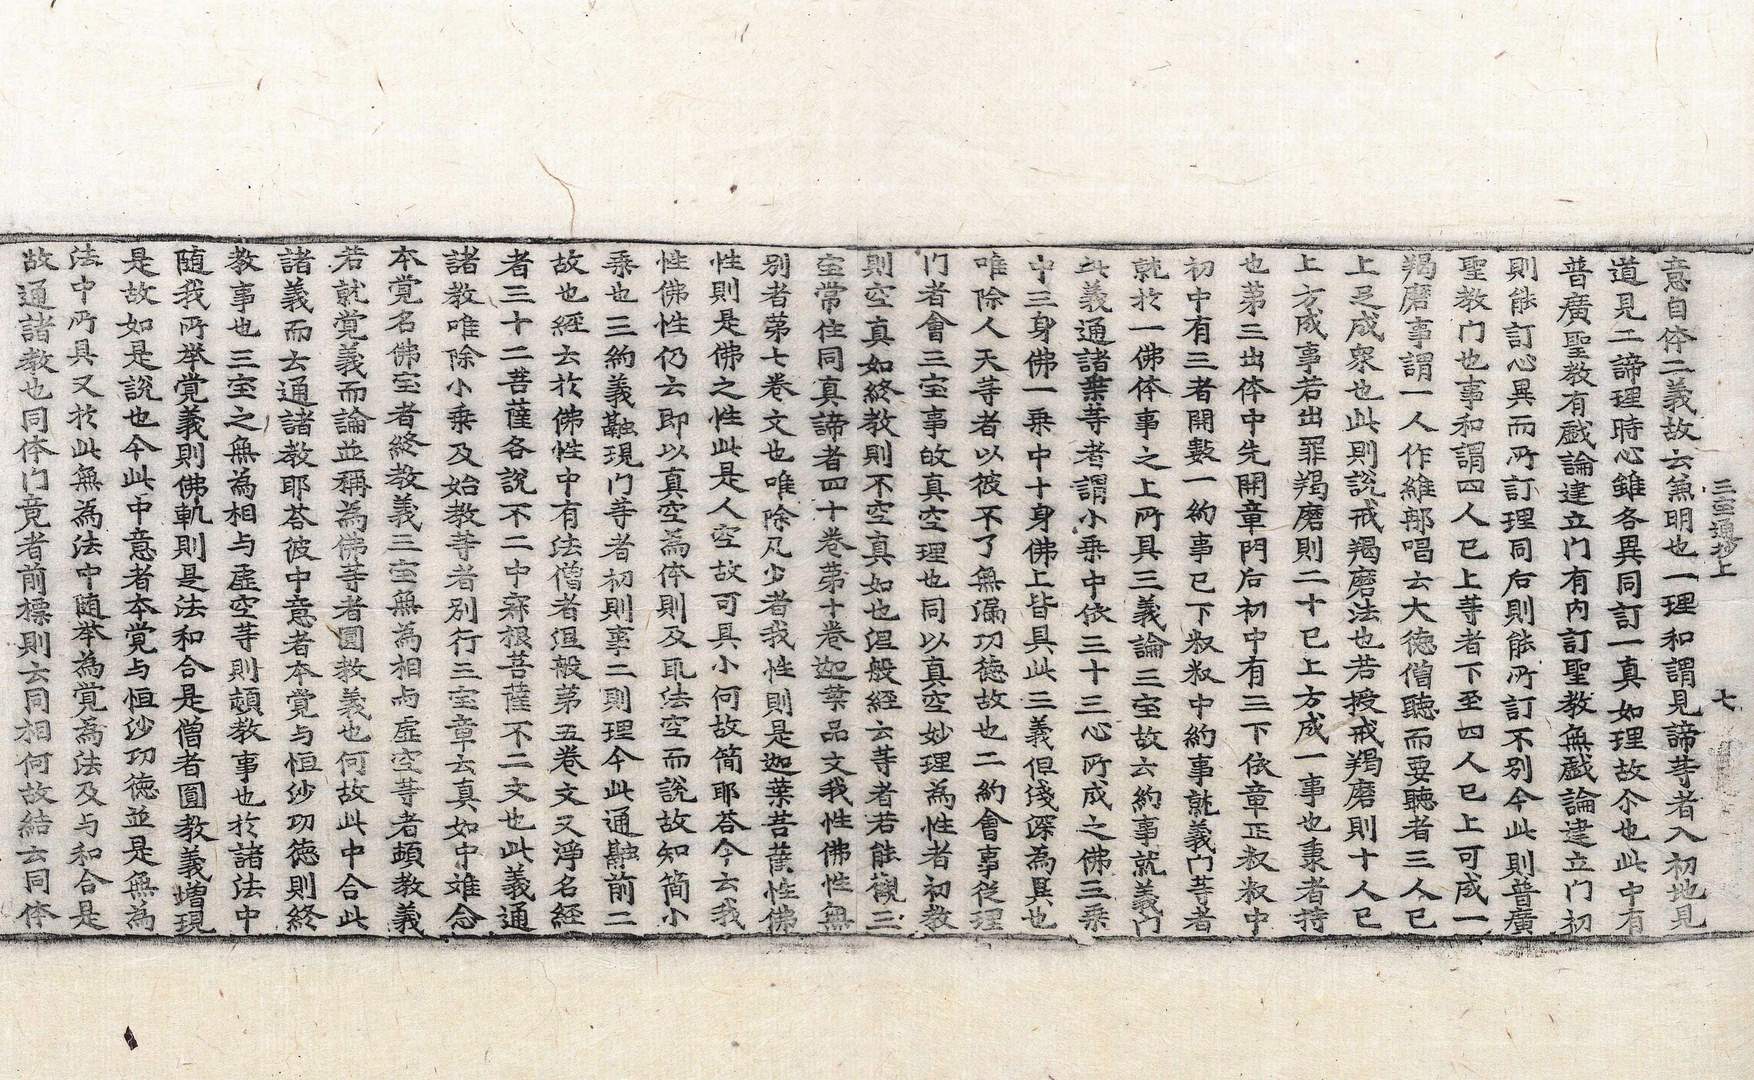 三宝通抄上　七
意自体二義故云無明也一理和謂見諦䒭者入初地見
道見二諦理時心雖各異同訂一真如理故尒也此中有
普廣聖教有戱論建立门有内訂聖教無戱論建立门初
則能訂心異而所訂理同后則能所訂不別今此則普廣
聖教门也事和謂四人已上等者下至四人已上可成一
羯磨事謂一人作維那唱云大徳僧聽而要聽者三人已
上足成衆也此則說戒羯磨法也若授戒羯磨則十人已
上方成事若出罪羯磨則二十已上方成一事也秉者持
也第三出体中先開章門后初中有三下依章正叔叔中
初中有三者開數一約事已下叔叔中約事就義门䒭者
就扵一佛体事之上所具三義論三宝故六約事就義门
此義通諸乗䒭者謂小乗中依三十三心所成之佛三乗
中三身佛一乗中十身佛上皆具此三義但浅深為異也
唯除人天䒭者以彼不了無漏功徳故也二約會事從理
门者會三宝事故真空理也同以真空妙理為性者初教
則空真如終教則不空真如也涅般經云䒭者若能觀三
宝常住同真諦者四十卷苐十卷迦葉品文我性佛性無
別者苐七卷文也唯除凡少者我性則是迦葉菩薩性佛
性則是佛之性此是人空故可具小何故简耶荅今云我
性佛性仍云即以真空為体則及乱法空而說故知简小
乗也三約義融現门䒭者初則事二則理今此通融前二
故也經云扵佛性中有法僧者涅般苐五卷文又淨名經
者三十二菩薩各說不二中寂根菩薩不二文也此義通
諸教唯除小乗及始教䒭者別行三宝章云真如中雖念
本覚名佛宝者終教義三宝無為相与虚空䒭者頓教義
若就覚義而論並稱為佛䒭者圓教義也何故此中合此
諸義而云通諸教耶荅彼中意者本覚与恒沙功徳則終
教事也三宝之無為相与虚空䒭則頓教事也扵諸法中
随我所举覚義則佛軌則是法和合是僧者圓教義增現
是故如是說也今此中意者本覚与恒沙功徳並是無為
法中所具又扵此無為法中随举為覚為法及与和合是
故通諸教也同体门竟者前標則云同相何故結云同体